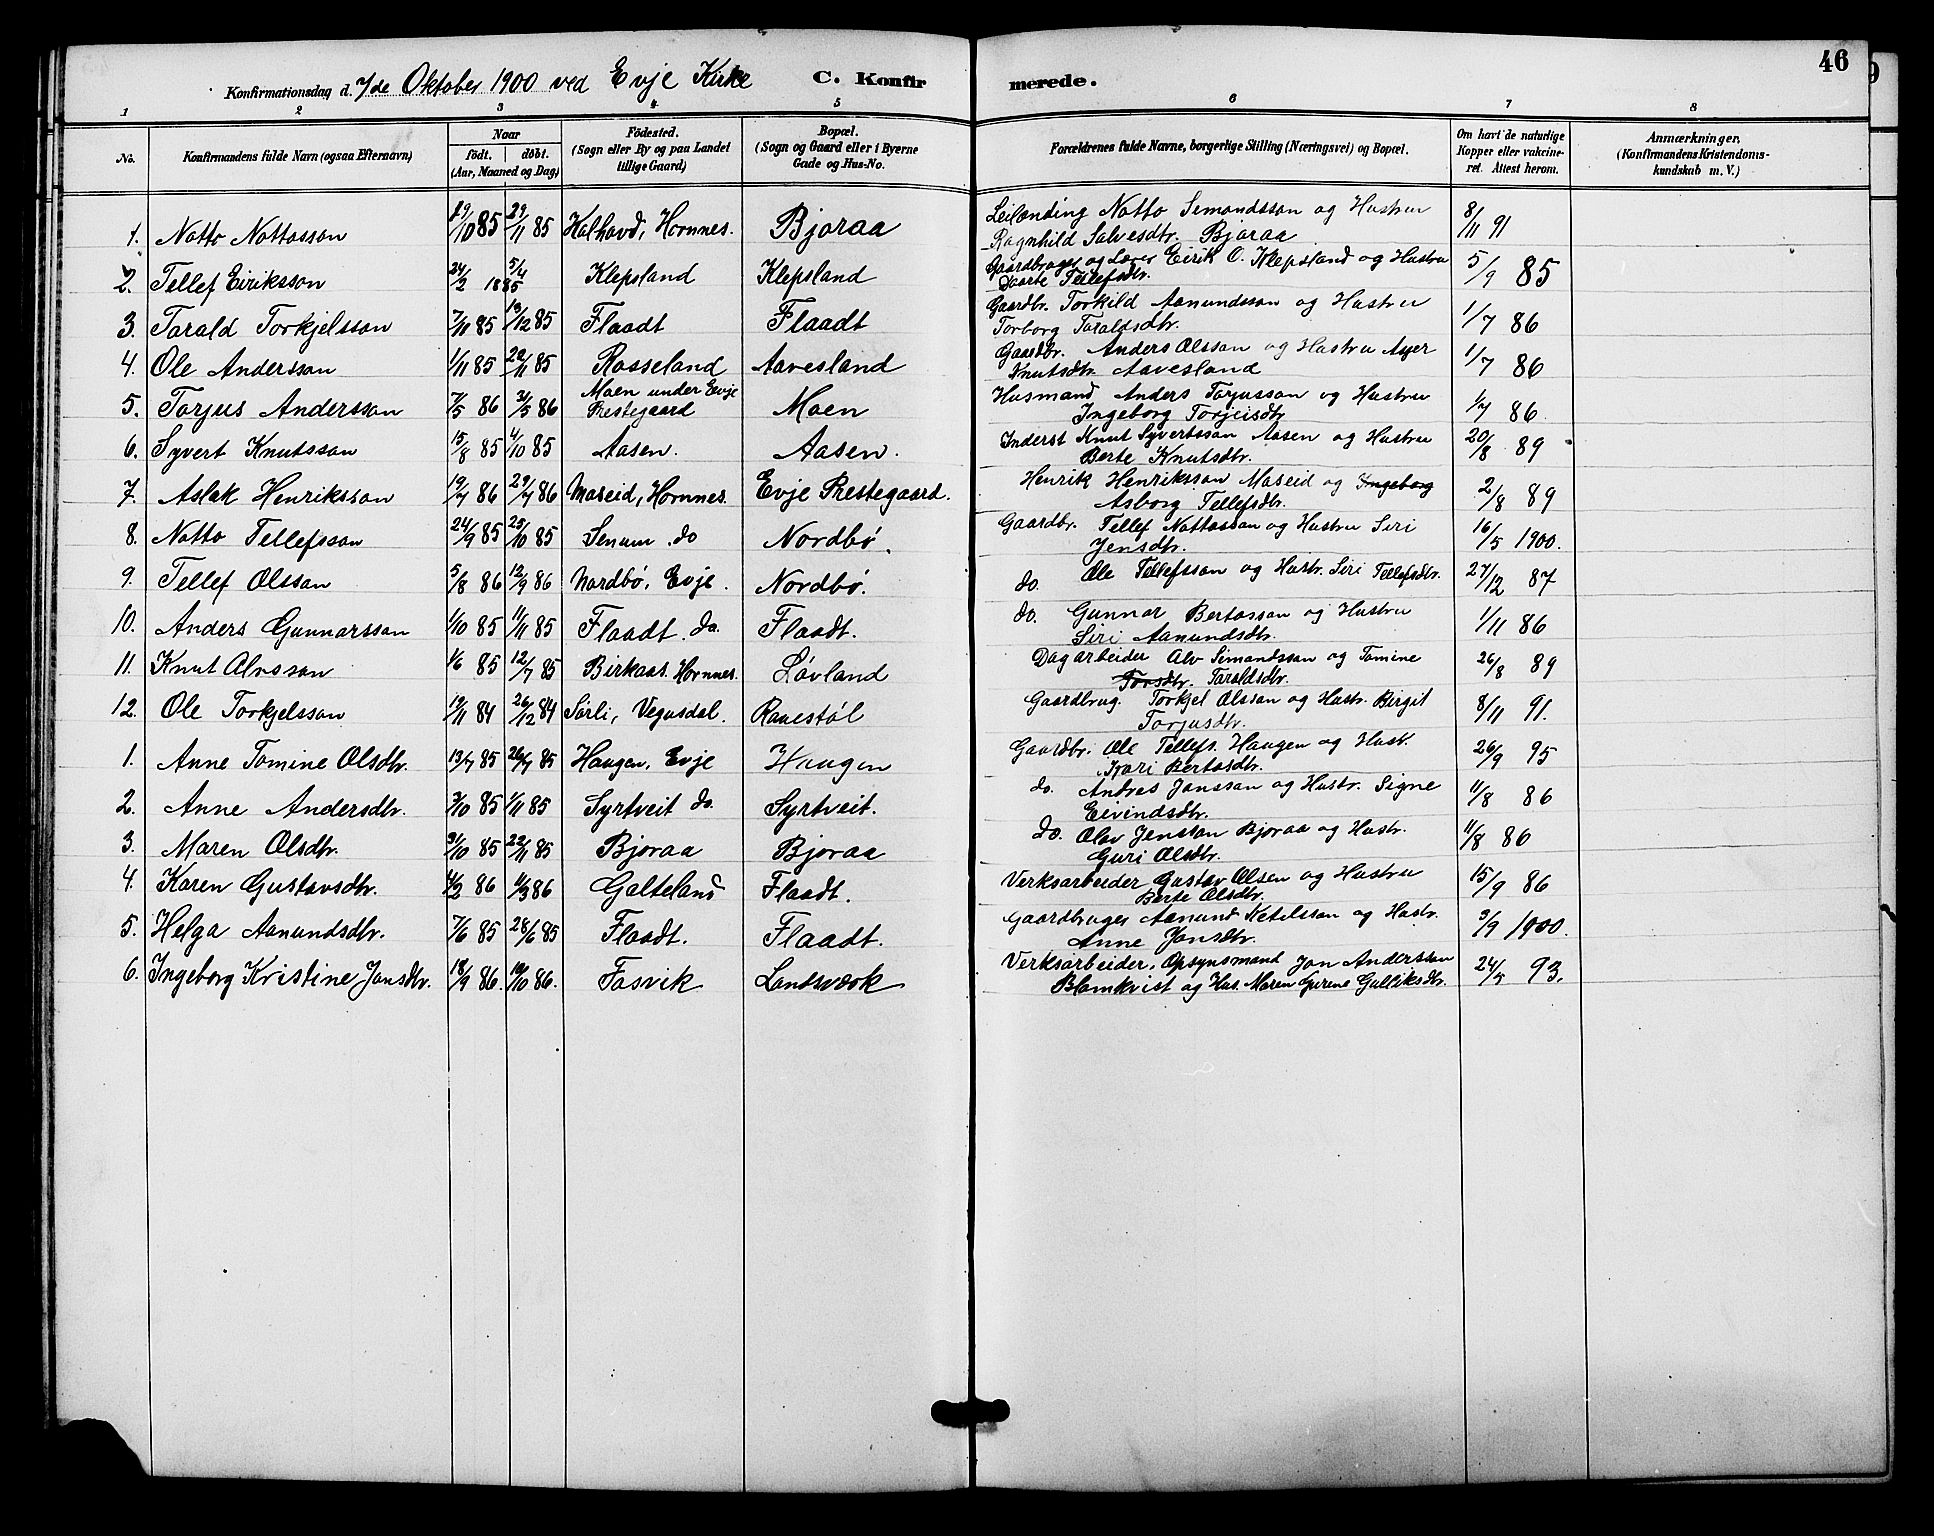 46
9
Konfirmationsdag d. 7de Oktober 1900 ved Evje Kirke C. Konfir merede.
1 2 3 4 5 6 7 8
No. Konfirmandens fulde Navn (ogsaa Efternavn) Naar födt. döbt. (Aar, Maaned og Dag) Födested. (Sogn eller By og paa Landet tillige Gaard) Bopæl. (Sogn og Gaard eller i Byerne Gade og Hus-No. Forældrenes fulde Navne, borgerlige Stilling (Næringsvei) og Bopæl. Om havt de naturlige Kopper eller vakcineret. Attest herom. Anmærkninger, (Konfirmandens Kristendomskundskab m. V.)
1. Notto Nottosson 29/10 85 29/11 85 Kalhovd, Hornnes. Bjoraa Leilænding Notto Simondsson og Hustru Ragnhild Salvesdtr. Bjoraa 8/11 91
2. Tellef Eiriksson 24/2 1885 5/4 Klepsland Klepsland Gaardbruger og Lærer Eirik O. Klepsland og Hustru Daarte Tellefsdtr. 5/9 85
3. Tarald Torkjelsson 7/11 85 13/12 85 Flaadt Flaadt Gaardbr. Torkild Aanundsson og Hustru Torborg Taraldsdtr. 1/7 86
4. Ole Andersson 1/11 85 22/11 85 Rosseland Aavesland Gaardbr. Anders Olsson og Hustru Asjer Knutsdtr. Aavesland 1/7 86
5. Torjus Andersson 7/5 86 31/5 86 Moen under Evje Prestegaard Moen Husmand Anders Torjusson og Hustru Ingeborg Torjeisdtr 1/7 86.
6. Syvert Knutsson 15/8 85 4/10 85 Aasen. Aasen. Inderst Knut Syvertsson Aasen og Hustru Berte Knutsdtr. 20/8 89
7. Aslak Henriksson 19/7 86 29/7 86 Moseid, Hornnes. Evje Prestegaard. Henrik Henriksson Moseid og Ingeborg Asborg Tellefsdtr. 2/8 89
8. Notto Tellefsson 24/9 85 25/10 85 Senum do Nordbø. Gaardbr. Tellef Nottosson og Hustru Siri Jensdtr. 16/5 1900.
9. Tellef Olsson 5/8 86 12/9 86 Nordbø, Evje. Nordbø. do. Ole Tellefsson og Hustr. Siri Tellefsdtr. 27/12 87
10. Anders Gunnarsson 1/10 85 1/11 85 Flaadt. do. Flaadt. do. Gunnar Bertosson og Hustru Siri Aanundsdtr. 1/11 86
11. Knut Alvsson 1/6 85 12/7 85 Birkaas. Hornnes. Løvland Dagarbeider Alv Simondsson og Tomine Torsdtr. Taraldsdtr. 26/8 89
12. Ole Torkjelsson 19/11 84 26/12 84 Sørli, Vegusdal. Ranestøl Gaardbrug. Torkjel Olsson og Hustr. Birgit Torjusdtr. 8/11 91.
1. Anne Tomine Olsdtr. 13/7 85 26/7 85 Haugen, Evje Haugen Gaardbr. Ole Tellefs. Haugen og Hust. Kari Bertosdtr. 26/9 95
2. Anne Andersdtr. 3/10 85 1/11 85 Syrtveit do. Syrtveit. do. Andras Jonsson og Hustr. Signe Eivindsdtr. 11/8 86
3. Maren Olsdtr. 3/10 85 22/11 85 Bjoraa Bjoraa do. Olav Jensson Bjoraa og Hustr. Guri Olsdtr. 11/8 86
4. Karen Gustavsdtr. 4/2 86 1/3 86 Galteland Flaadt. Verksarbeider Gustav Olsen og Hustru Berte Olsdtr. 15/9 86
5. Helga Aanundsdtr. 7/6 85 28/6 85 Flaadt. Flaadt. Gaardbruger Aanund Ketilsson og Hustr. Anne Jonsdtr. 3/9 1900.
6. Ingeborg Kristine Jonsdtr. 18/9 86. 10/10 86. Fasvik Landsværk Verksarbeider, Opsynsmand Jon Andersson Blomkvist og Hus. Maren Gurene Gulliksdtr. 24/5 93.